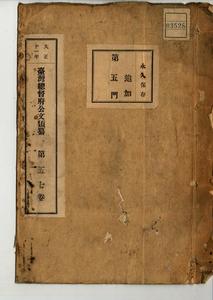 03528
永久保存
追加
第五門
大正
十一年
臺灣總督府公文類纂
第一五七卷